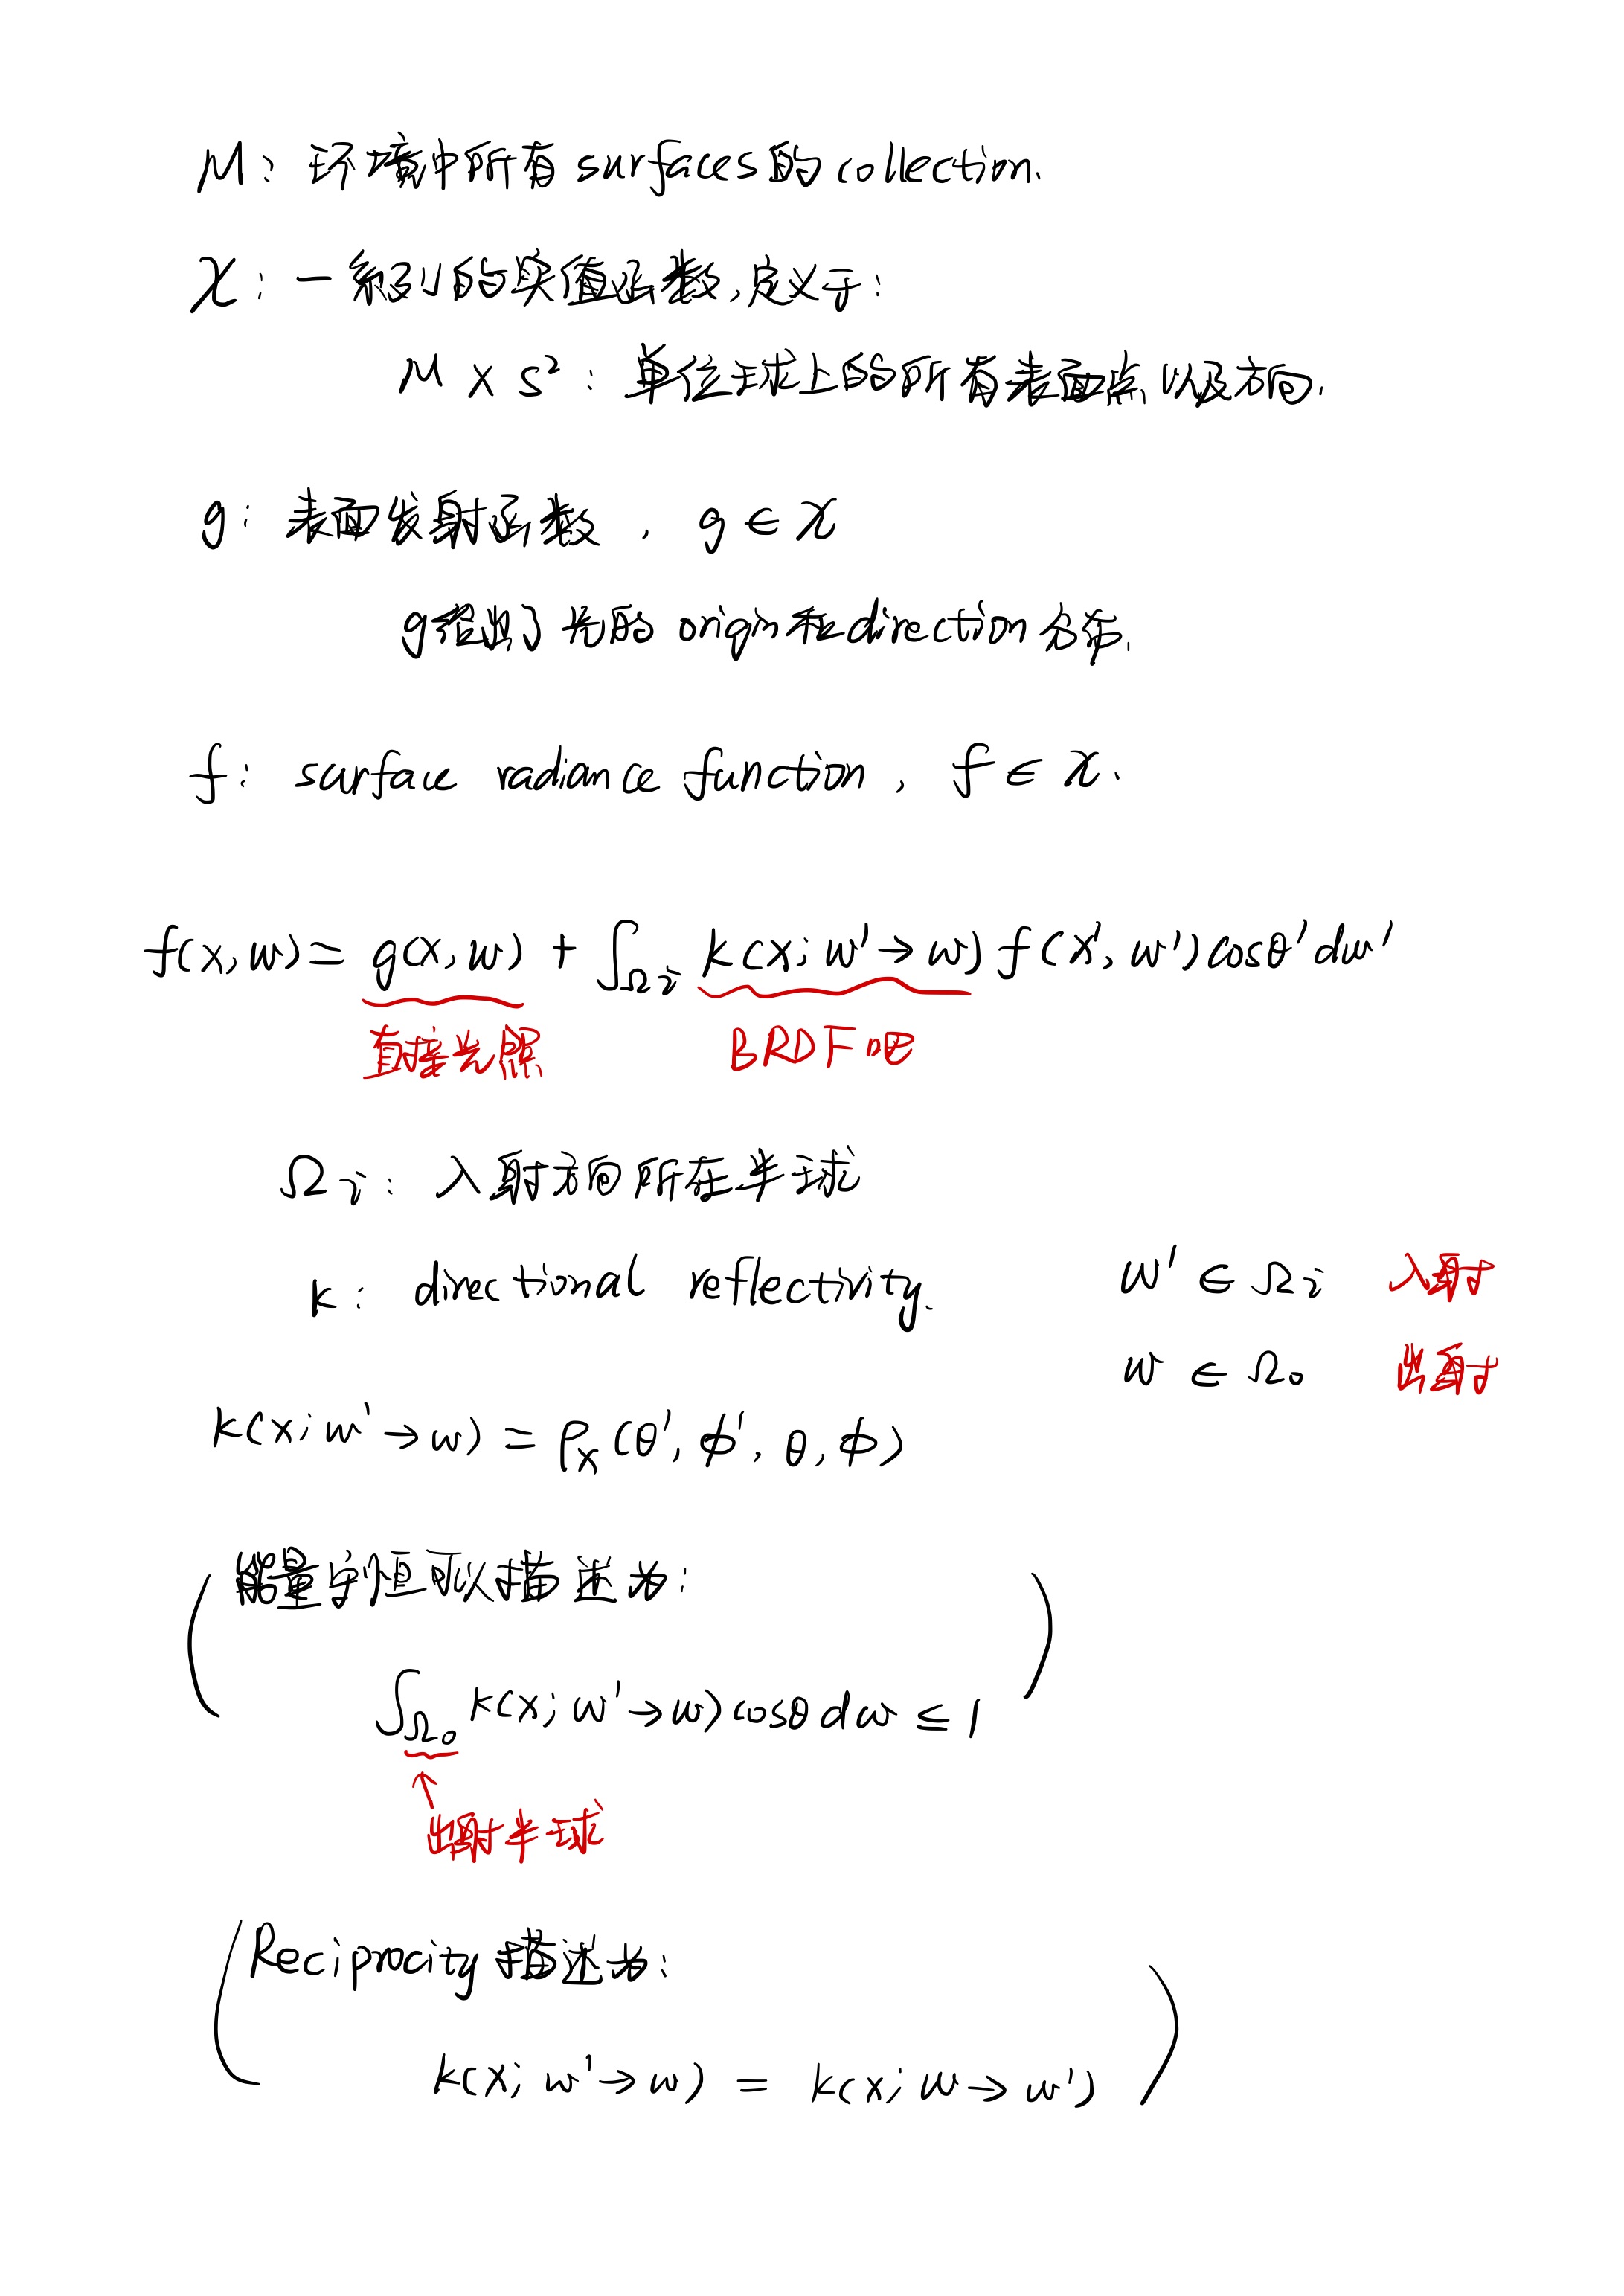 M: 环境中所有surfaces的collection.
χ: 一系列的实值函数,定义于:
M × S²: 单位球上的所有表面点以及方向.
g: 表面发射函数, g ∈ χ
g给出了光的origin和direction分布.
f: surface radiance function, f ∈ χ.
f(x,w) = g(x,w) + ∫Ωi k(x; w'→w) f(x', w') cosθ' dw'
直接光照 BRDF吧
Ωi: 入射方向所在半球
k: directional reflectivity. w' ∈ Ωi 入射
w ∈ Ωo 出射
k(x; w'→w) = ρx(θ', ϕ', θ, ϕ)
能量守恒可以描述为:
∫Ωo k(x; w'→w) cosθ dw ≤ 1
↑
出射半球
Reciprocity描述为:
k(x; w'→w) = k(x; w→w')